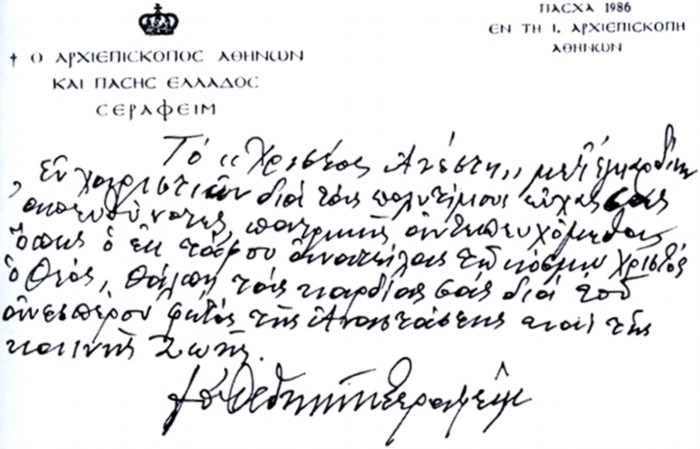 ΠΑΣΧΑ 1986
ΕΝ ΤΗ Ι. ΑΡΧΙΕΠΙΣΚΟΠΗ
ΑΘΗΝΩΝ
† Ο ΑΡΧΙΕΠΙΣΚΟΠΟΣ ΑΘΗΝΩΝ
ΚΑΙ ΠΑΣΗΣ ΕΛΛΑΔΟΣ
ΣΕΡΑΦΕΙΜ
Τό «Χριστός Ἀνέστη»
εὐχαριστιῶν διά τάς πολυτίμους εὐχάς σας
πατρικῶς ἀντευχόμεθα
ὅπως ὁ ἐκ τάφου ἀνατείλας τῷ κόσμῳ Χριστός
ὁ Θεός, θάλπῃ τάς καρδίας σας διά τοῦ
ἀνεσπέρου φωτός τῆς Ἀναστάσεως καί τῆς
καινῆς ζωῆς.
† ὁ Ἀθηνῶν Σεραφείμ